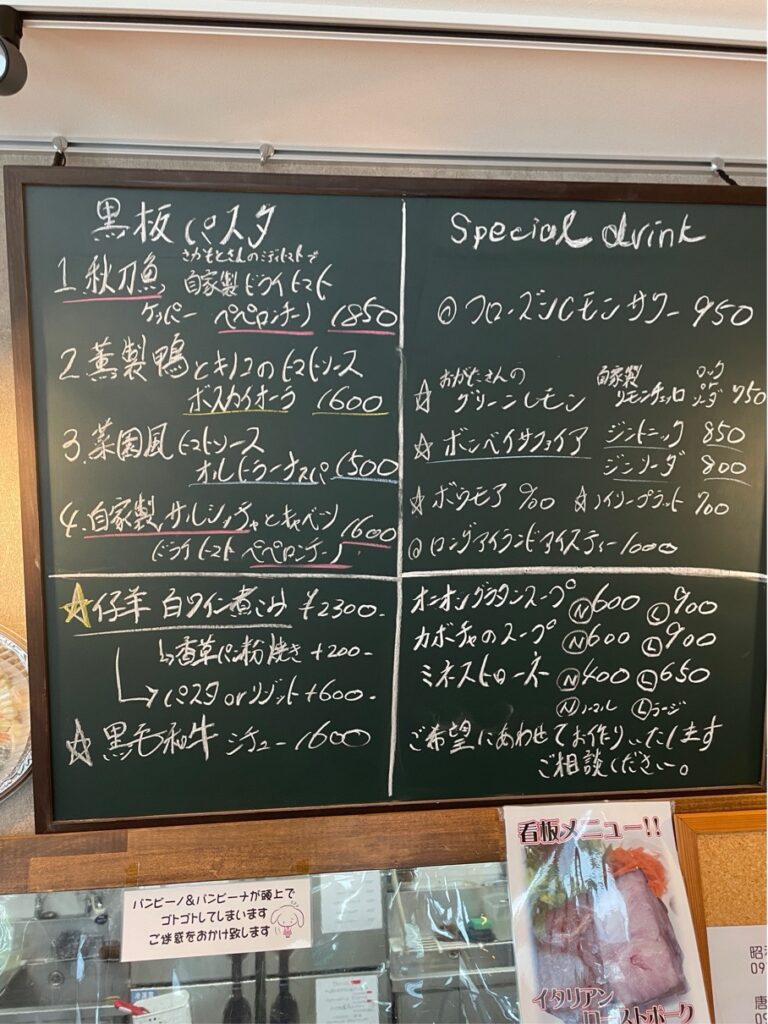 黒板パスタ
さかもとさんのミディトマトで
1.秋刀魚 自家製ドライトマト
ケッパー ペペロンチーノ 1850
2.薫製鴨とキノコのトマトソース
ボスカイオーラ 1600
3.菜園風トマトソース
オルトラーナスパ 1500
4.自家製サルシッチャとキャベツ 1600
ドライトマト ペペロンチーノ
☆仔羊 白ワイン煮こみ ¥2300-
↳香草パン粉焼き +200-
↳パスタ or リゾット +600-
☆黒毛和牛 シチュー 1600
Special drink
フローズンレモンサワー 950
☆おがたさんの
グリーンレモン 自家製リモンチェッロ ロック or ソーダ 750
☆ボンベイサファイア ジントニック 850
ジンソーダ 800
☆ボウモア 900 ☆ノイリープラット 700
ロングアイランドアイスティー 1000
オニオングラタンスープ Ⓝ600 Ⓛ900
カボチャのスープ Ⓝ600 Ⓛ900
ミネストローネ Ⓝ400 Ⓛ650
Ⓝノーマル Ⓛラージ
ご希望にあわせてお作りいたします
ご相談ください。
バンビーノ&バンビーナが頭上で
ゴトゴトしてしまいます
ご迷惑をおかけ致します
看板メニュー!!
イタリアン
ローストポーク
昭
09
唐
09